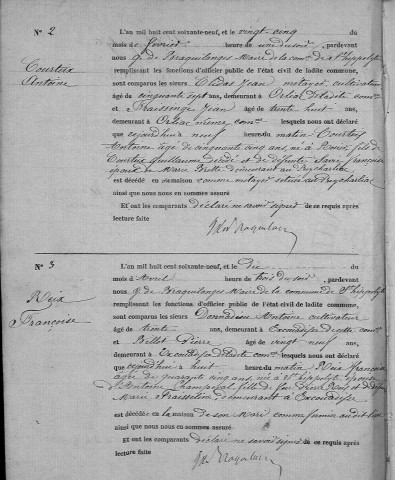 N° 2
Courteix
Antoine
L'an mil huit cent soixante-neuf, et le vingt-cinq du
mois de février heure de une du soir, pardevant
nous G. de Braquilanges Maire de la com.ne de St hippolyte
remplissant les fonctions d'officier public de l'état civil de ladite commune,
sont comparus les sieurs Jean métayer, cultivateur
âgé de cinquante sept ans, demeurant à Orliac de ladite com.ne
et Jean âgé de trente huit ans,
demeurant à Orliac même com.ne lesquels nous ont déclaré
que cejourd'hui neuf heure du matin Courteix
Antoine âgé de cinquante cinq ans, né à fils de
Courteix Guillaume décédé et de défunte françoise
époux de Marie demeurant au Puycharliac
est décédé en sa maison comme métayer située au Puycharliac
ainsi que nous nous en sommes assuré
Et ont les comparants déclaré ne savoir signer de ce requis après
lecture faite
N° 3
Reix
Françoise
L'an mil huit cent soixante-neuf, et le dix du
mois d'Avril heure de trois du soir, pardevant
nous G. de Braquilanges Maire de la commune de St hippolyte
remplissant les fonctions d'officier public de l'état civil de ladite commune,
sont comparus les sieurs Antoine cultivateur
âgé de trente ans, demeurant à de cette com.ne
et Billot Pierre âgé de vingt neuf ans,
demeurant à de ladite com.ne lesquels nous ont déclaré
que cejourd'hui à huit heure du matin Reix françoise
âgée de quarante cinq ans, née à St hippolyte épouse
d'Antoine Champeval fille de feu Reix et de
Marie demeurant à
est décédée en la maison de son Mari comme fermier audit lieu
ainsi que nous nous en sommes assuré
Et ont les comparants déclaré ne savoir signer de ce requis après
lecture faite